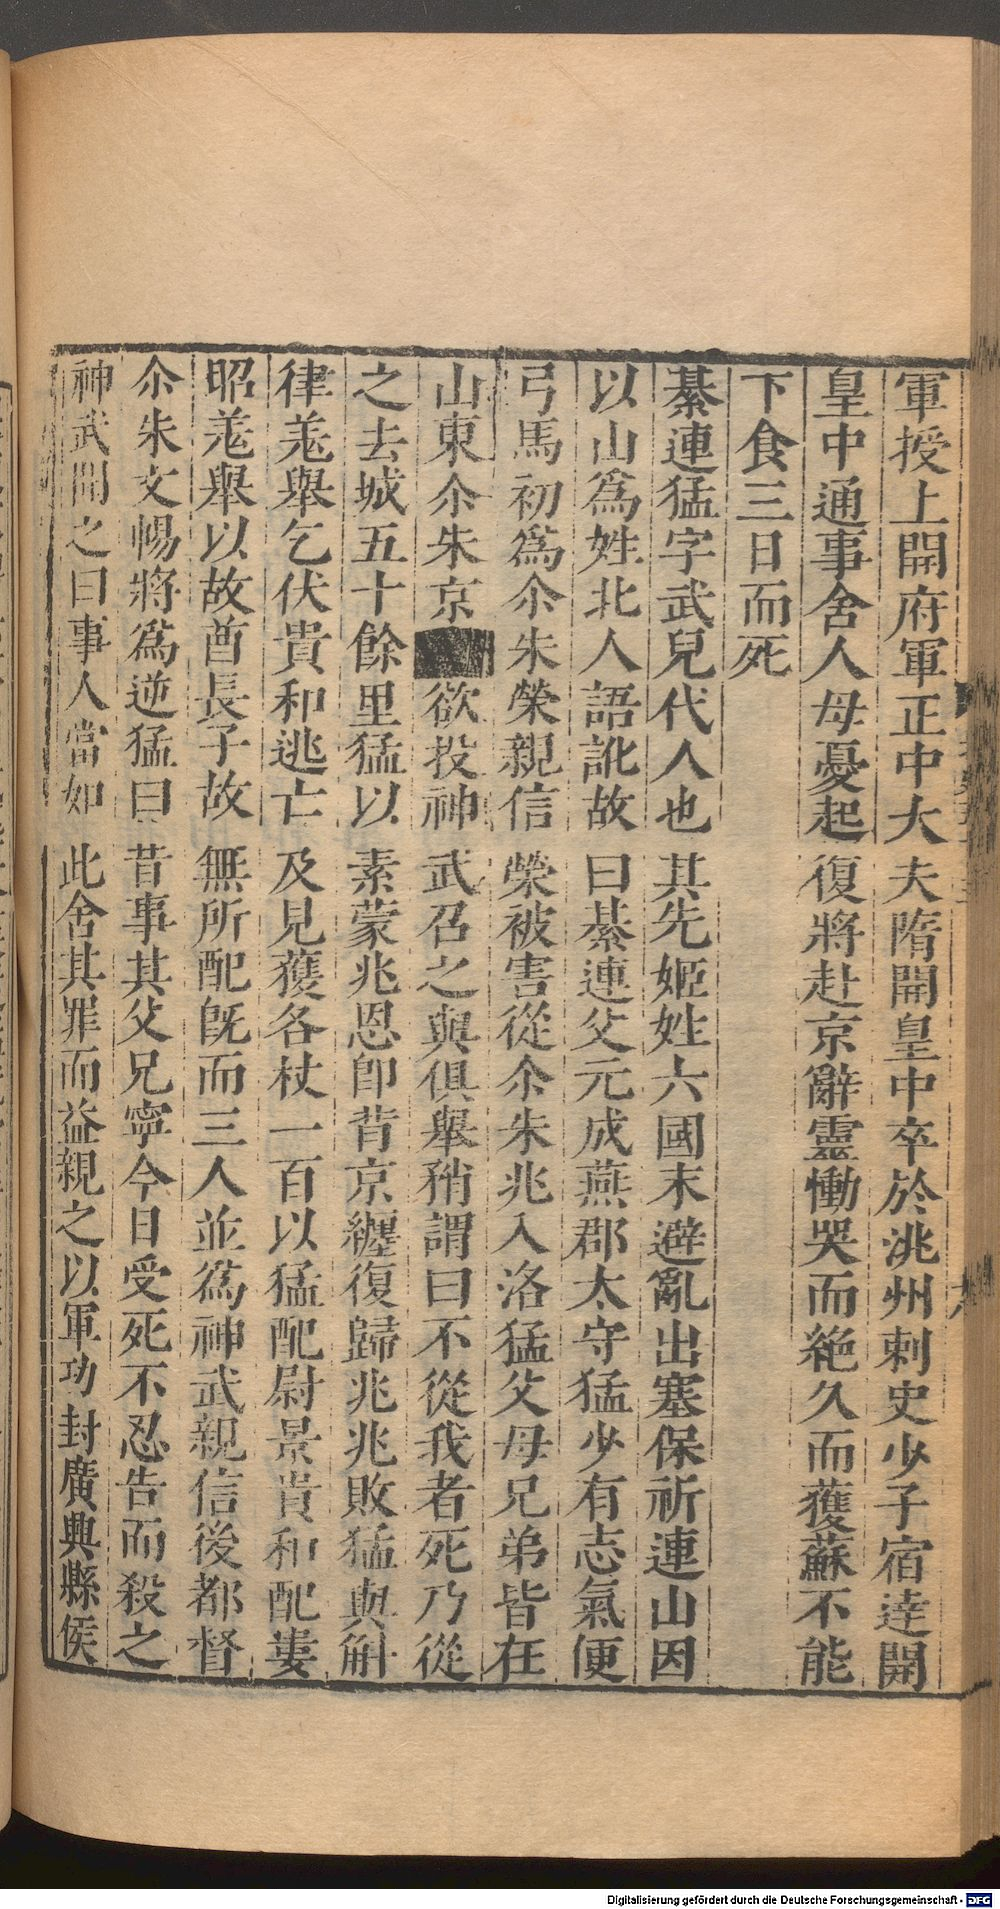 軍授上開府軍正中大夫隋開皇中卒於洮州刺史少子宿達開
皇中通事舍人母憂起復將赴京辭靈慟哭而絶久而獲蘇不能
下食三日而死
綦連猛字武兒代人也其先姬姓六國末避亂出塞保祈連山因
以山爲姓北人語訛故曰綦連父元成燕郡太守猛少有志氣便
弓馬初爲尒朱榮親信榮被害從尒朱兆入洛猛父母兄弟皆在
山東尒朱京欲投神武召之與俱舉矟謂曰不從我者死乃從
之去城五十餘里猛以素蒙兆恩卽背京纏復歸兆兆敗猛與斛
律羌舉乞伏貴和逃亡及見獲各杖一百以猛配尉景貴和配婁
昭羌舉以故酋長子故無所配旣而三人並爲神武親信後都督
尒朱文暢將爲逆猛曰昔事其父兄寧今日受死不忍告而殺之
神武聞之曰事人當如此舍其罪而益親之以軍功封廣興縣侯
Digitalisierung gefördert durch die Deutsche Forschungsgemeinschaft - DFG